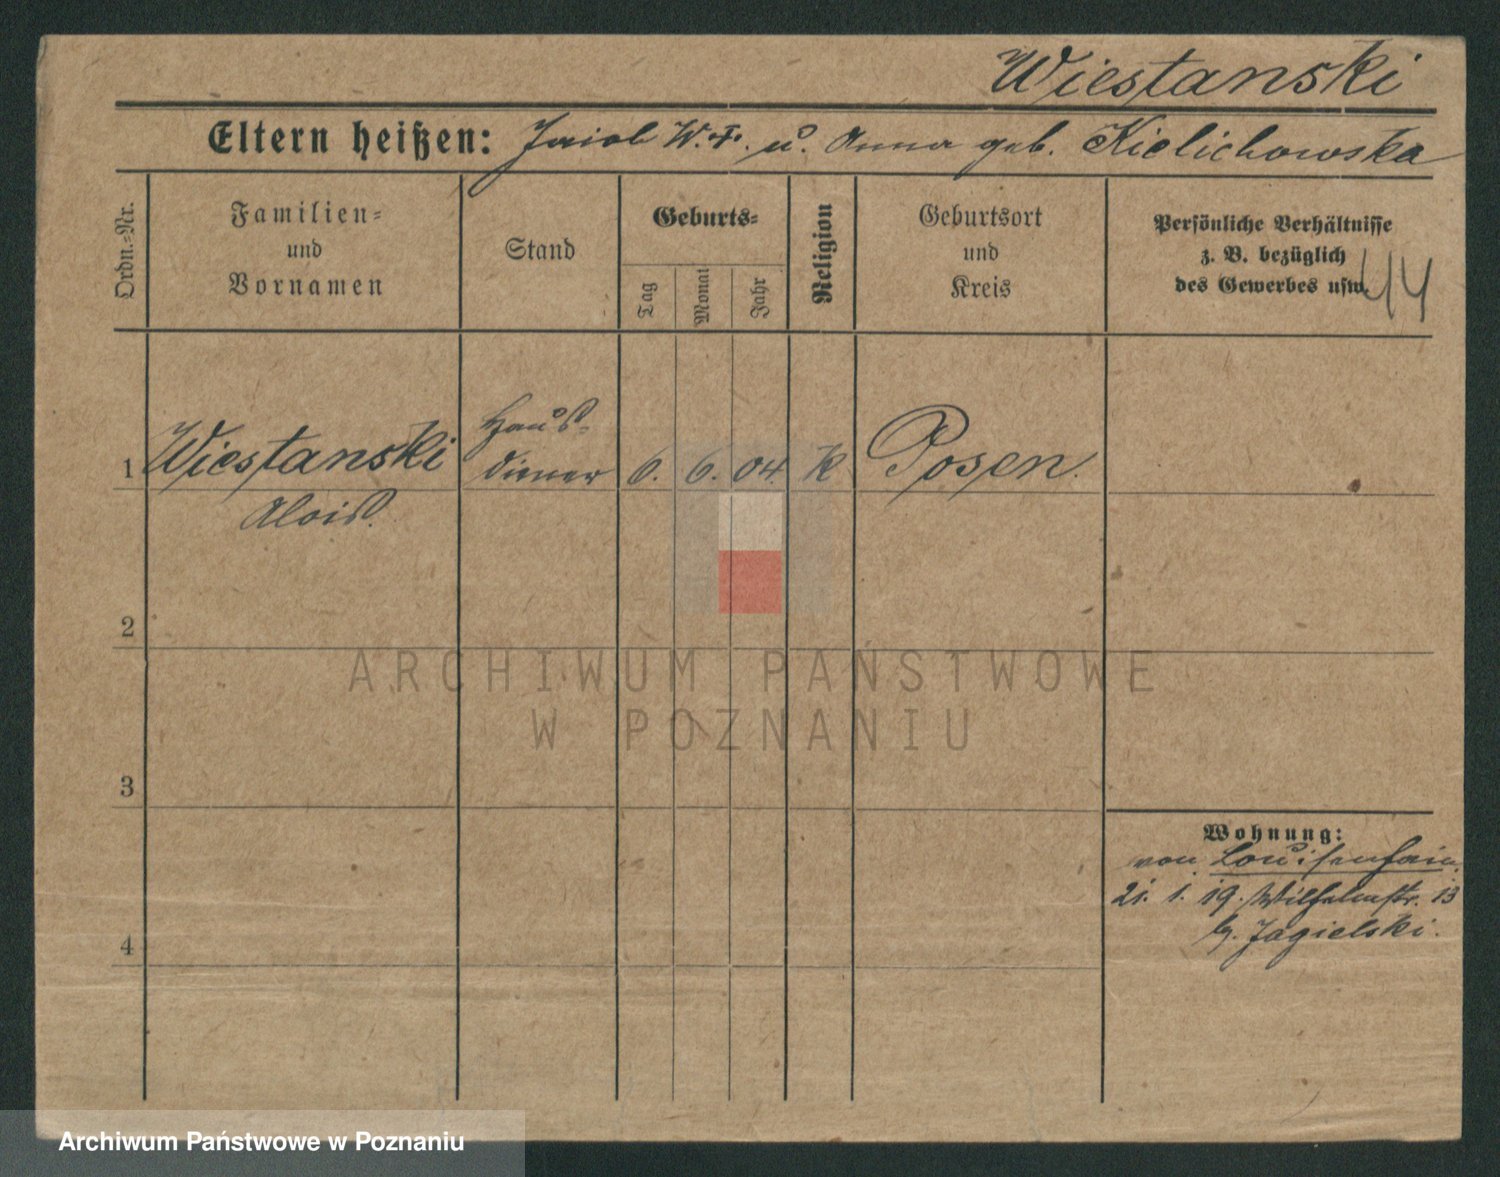 Wiestanski
Eltern heißen: Jakob W. u. Anna geb. Kielichowska
Ordn.-Nr.
Familien-
und
Vornamen
Stand
Geburts-
Tag
Monat
Jahr
Religion
Geburtsort
und
Kreis
Persönliche Verhältnisse
z. B. bezüglich
des Gewerbes usw.
44
1 Wiestanski Haus- 6. 6. 04. K Posen.
Alois. diener
2
3
4
Wohnung:
von Louisenhain
21. 1. 19. Wilhelmstr. 13
b. Jagielski.
ARCHIWUM PAŃSTWOWE
W POZNANIU
Archiwum Państwowe w Poznaniu